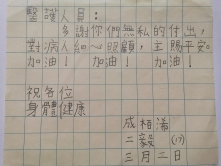 醫護人員:
多謝你們無私的付出,
對病人細心照顧,主賜平安。
加油! 加油! 加油!
祝各位
身體健康
成栢浠
二毅 (17)
三月二日